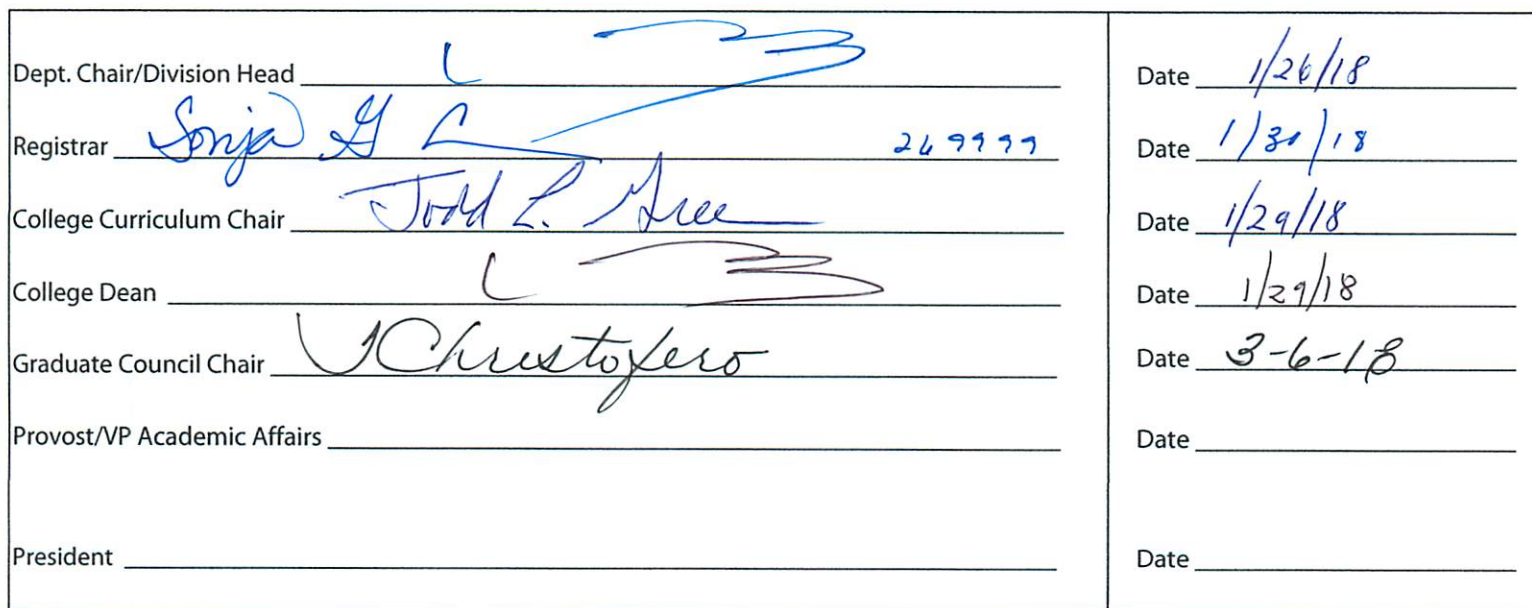 Dept. Chair/Division Head Date 1/26/18
Registrar Sonja G 269999 Date 1/30/18
College Curriculum Chair Todd L. Gree Date 1/29/18
College Dean Date 1/29/18
Graduate Council Chair JChristofero Date 3-6-18
Provost/VP Academic Affairs Date
President Date